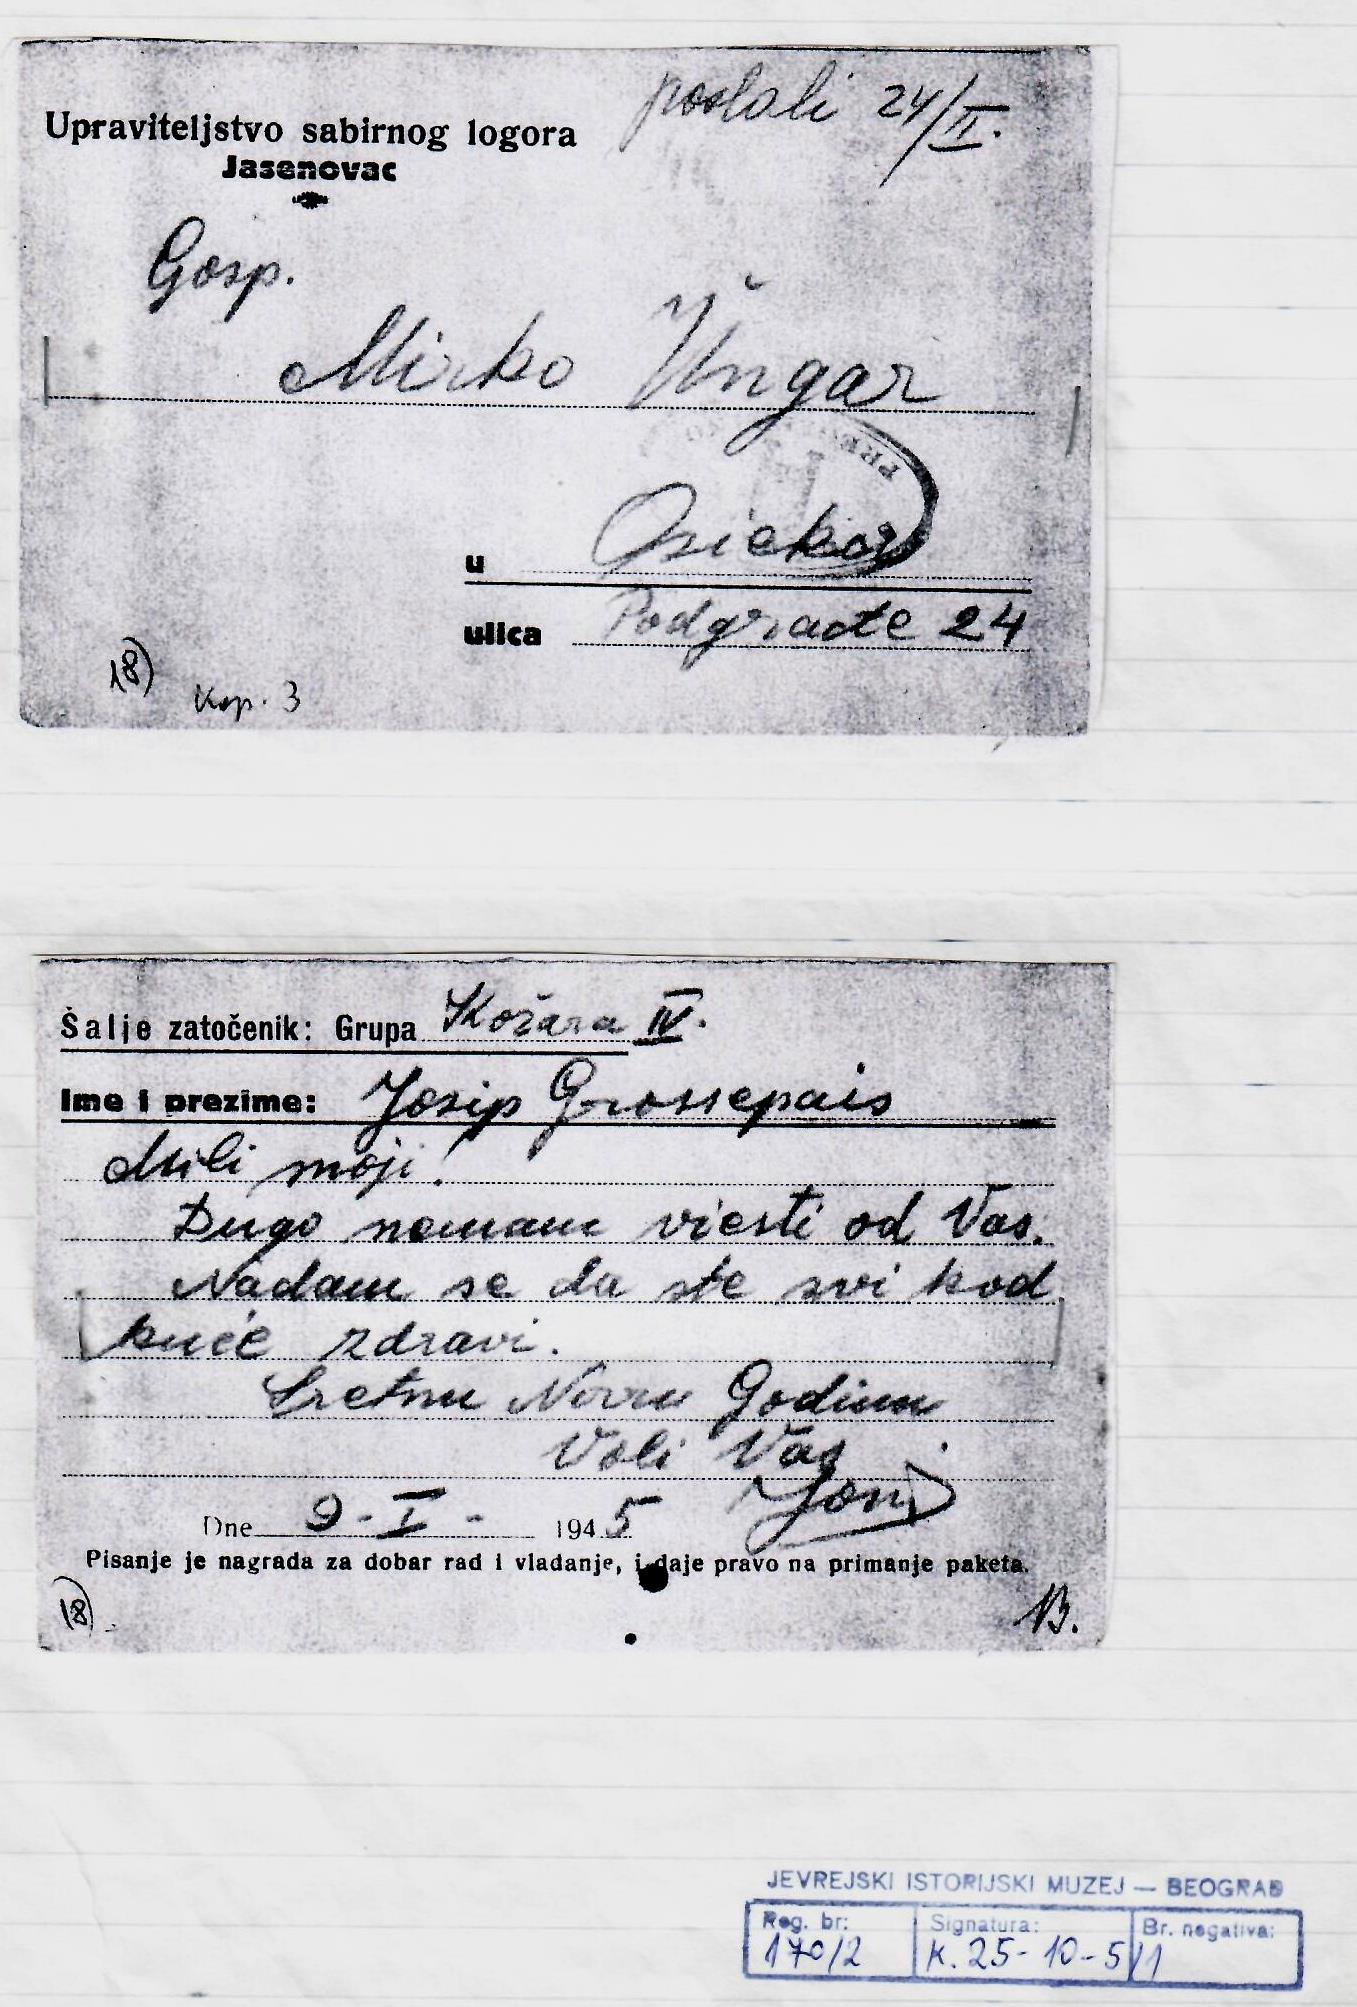 poslali 24/II.
Upraviteljstvo sabirnog logora
Jasenovac
Gosp.
Mirko Ungar
u Osiek
ulica Podgrađe 24
18)
Kop. 3
Šalje zatočenik: Grupa Kožara IV.
Ime i prezime: Josip Grossepais
Mili moji!
Dugo nemam viesti od Vas.
Nadam se da ste svi kod
kuće zdravi.
Sretnu Novu Godinu
Voli Vas
Dne 9-I- 1945
Pisanje je nagrada za dobar rad i vladanje, i daje pravo na primanje paketa.
18)
JEVREJSKI ISTORIJSKI MUZEJ — BEOGRAD
Reg. br: Signatura: Br. negativa:
170/2 K. 25-10-5/1